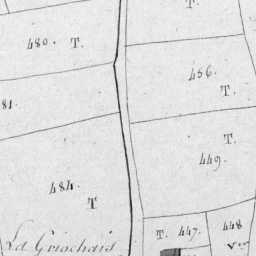 T.
480. T.
456.
T.
81.
T.
449.
484.
T
448
T. 447.
La Griochais